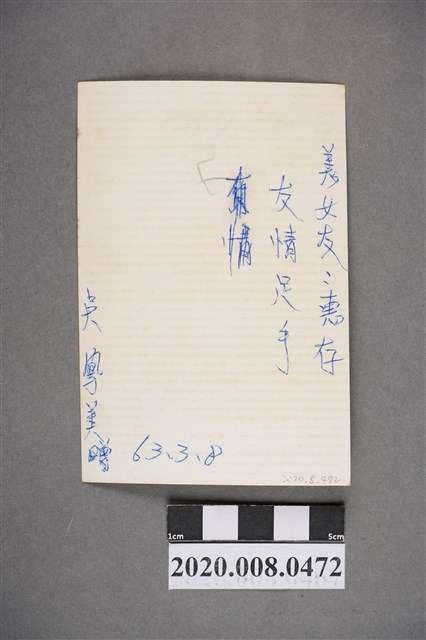 義女友：惠存
友情足手
情
吳鳳美贈 63.3.8
2020.8.472
1cm 5cm
2020.008.0472